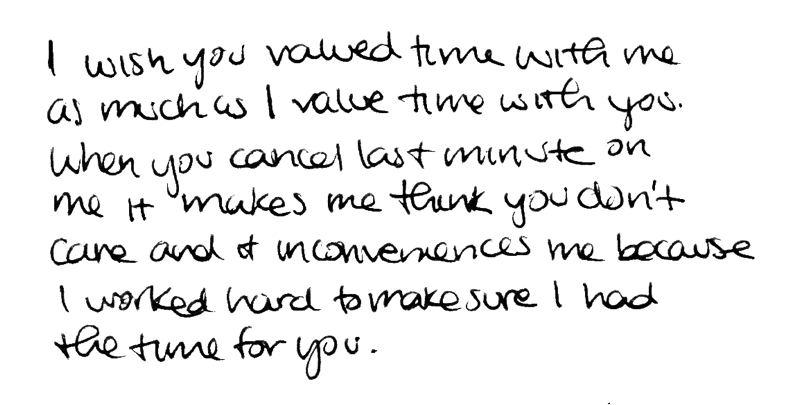 I wish you valued time with me
as much as I value time with you.
When you cancel last minute on
me it makes me think you don't
care and it inconveniences me because
I worked hard to make sure I had
the time for you.